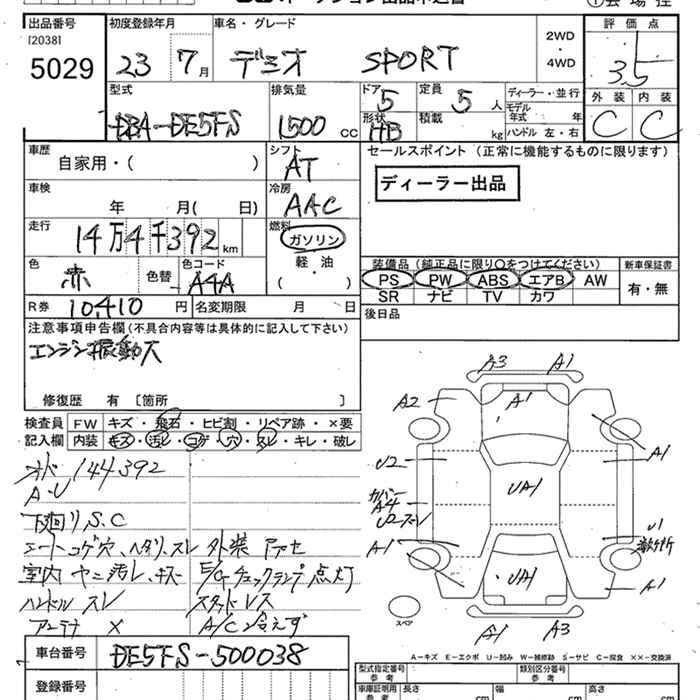 出品番号 初度登録年月 車名・グレード 2WD・4WD 評価点
[2038]
5029 23 7月 デミオ SPORT 3.5
外装 内装
C C
型式 排気量 ドア 5 定員 5人 ディーラー・並行
モデル年式 年
DBA-DE5FS 1500cc 形状 HB 積載 kg ハンドル 左・右
車歴 自家用・( )
シフト AT
セールスポイント (正常に機能するものに限ります)
ディーラー出品
車検 年 月( 日)
冷房 AAC
走行 14万4千392km
燃料 ガソリン
軽・油
( )
色 赤 色替 - 色コード A4A
装備品(純正品に限り○をつけてください) 新車保証書
PS PW ABS エアB AW 有・無
SR ナビ TV カワ
R券 10,410円 名変期限 月 日
後日品
注意事項申告欄(不具合内容等は具体的に記入して下さい)
エンジン振動大
修復歴 有 [箇所 ]
検査員 FW キズ・飛石・ヒビ割・リペア跡・×要
記入欄 内装 キズ・汚レ・コゲ・穴・スレ・キレ・破レ
144392
A・U
下廻り S.C
シートコゲ穴、ヘタリ、スレ 外装
室内 ヤニ汚レ、キズ E/Gチェックランプ点灯
ハンドルスレ スタッドレス
アンテナ × A/C冷えず
A3 A1
A2 A1
A1
U2
UA1
カバー
A4
U1
A1
UA1
A1
A1 A3
スペア
A-キズ E-エクボ U-凹み W-補修跡 S-サビ C-腐食 ××-交換済
車台番号 DE5FS-500038
登録番号
型式指定番号 参考 類別区分番号 参考
車庫証明用 参考 長さ cm 幅 cm 高さ cm